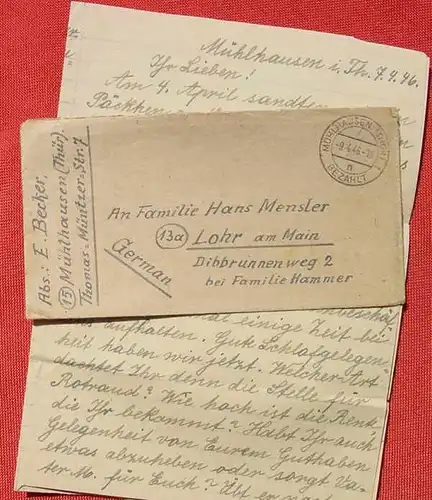 Mühlhausen i. Th. 7.4.46.
Ihr Lieben!
Am 4. April sandten
Päckchen
MÜHLHAUSEN
-9.4.46.
n
BEZAHLT
Abs.: E. Becker,
(15) Mühlhausen (Thür).
Thomas-Müntzer-Str. 7
An Familie Hans Mensler
(13a) Lohr am Main
Dibbrunnenweg 2
bei Familie Hammer
German
einige Zeit bei
aufhalten. Gute Schlafgelegen
heit haben wir jetzt. Welcher Art
dachtet Ihr denn die Stelle für
Rotraud? Wie hoch ist die Rente
die Ihr bekommt? Habt Ihr auch
Gelegenheit von Eurem Guthaben
etwas abzuheben oder sorgt Va-
ter M. für Euch? Übt er